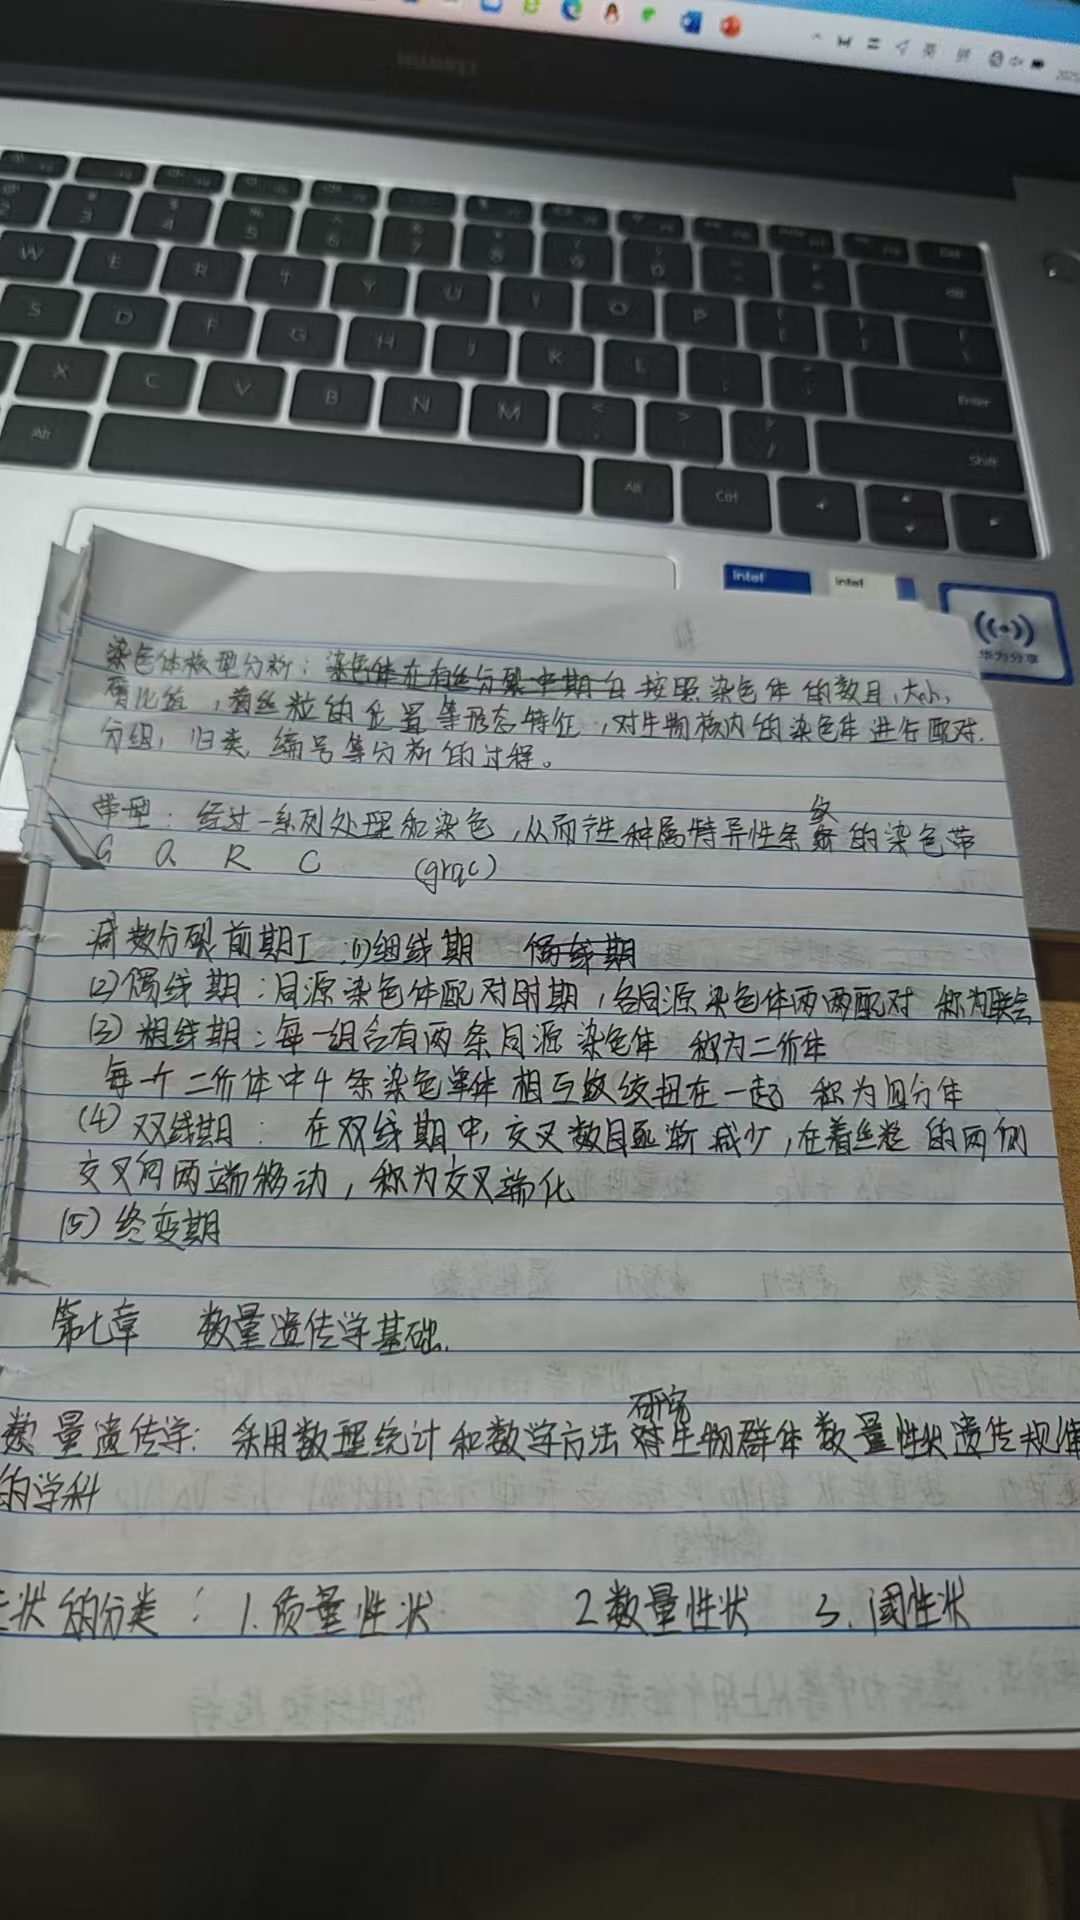 HUAWEI
英 拼
W E R Y U I O P
S D F G H J K L
Enter
X C V B N M
Shift
Alt Alt Ctrl
intel intel
华为分享
染色体核型分析：按照染色体的数目，大小，
臂比值，着丝粒的位置等形态特征，对生物核内的染色体进行配对.
分组，归类、编号等分析的过程。
带型：经过一系列处理和染色，从而产生种属特异性条纹的染色带
G Q R C (grqc)
减数分裂前期I (1)细线期 偶线期
(2)偶线期：同源染色体配对时期，各同源染色体两两配对 称为联会
(3)粗线期：每一组含有两条同源染色体 称为二价体
每一个二价体中4条染色单体相互缴绞扭在一起 称为四分体
(4)双线期：在双线期中，交叉数目逐渐减少，在着丝粒的两侧
交叉向两端移动，称为交叉端化
(5)终变期
第七章 数量遗传学基础.
研究
数量遗传学：采用数理统计和数学方法生物群体数量性状遗传规律
的学科
性状的分类：1.质量性状 2数量性状 3.阈性状